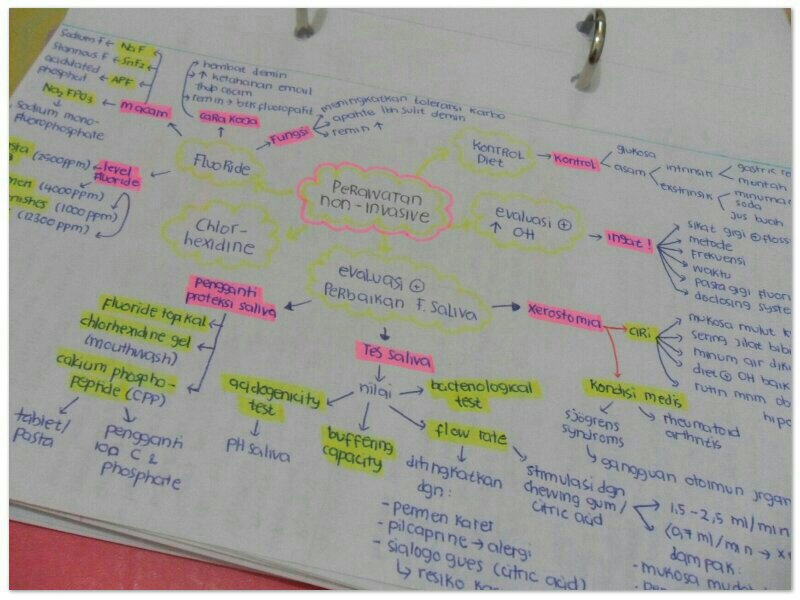 Sodium F ← NaF
Stannous F ← SnF2
acidulated phosphat ← APF
Na2FPO3
sodium mono-
fluorophosphate
macam
hambat demin
↑ ketahanan email
thdp asam
remin → btk fluorapatit
cara kerja
Fungsi
meningkatkan toleransi karbo
apatite lbh sulit demin
remin ↑
FLUORIDE
level
fluoride
(2500ppm)
(4000ppm)
(1000ppm)
(12300ppm)
PERAWATAN
non-INVASIVE
KONTROL
DIET
Kontrol
glukosa
asam
intrinsik
gastric re
muntah
ekstrinsik
minuma
soda
jus buah
evaluasi ⊕
↑ OH
Ingat!
sikat gigi ⊕ floss
metode
Frekuensi
waktu
Pasta gigi fluori
disclosing syste
Chlor-
hexidine
evaluasi ⊕
Perbaikan F. Saliva
pengganti
proteksi saliva
Fluoride topikal
chlorhexidine gel
(mouthwash)
calcium phospho-
peptide (CPP)
tablet/
pasta
pengganti
ion C &
phosphate
Tes saliva
nilai
acidogenicity
test
PH saliva
buffering
capacity
bacteriological
test
flow rate
ditingkatkan
dgn:
- permen karet
- pilcaprine → alergi
- sialogogues (citric acid)
↳ resiko
stimulasi dgn
chewing gum/
citric acid
1,5-2,5 ml/min
<0,7 ml/min →
dampak:
- mukosa mudah
Xerostomia
CIRI
mukosa mulut k
sering jilat bibi
minum air diki
diet ⊕ OH baik
rutin mnm ob
hipe
Kondisi medis
sjogrens
syndroms
rheumatoid
arthritis
gangguan otoimun